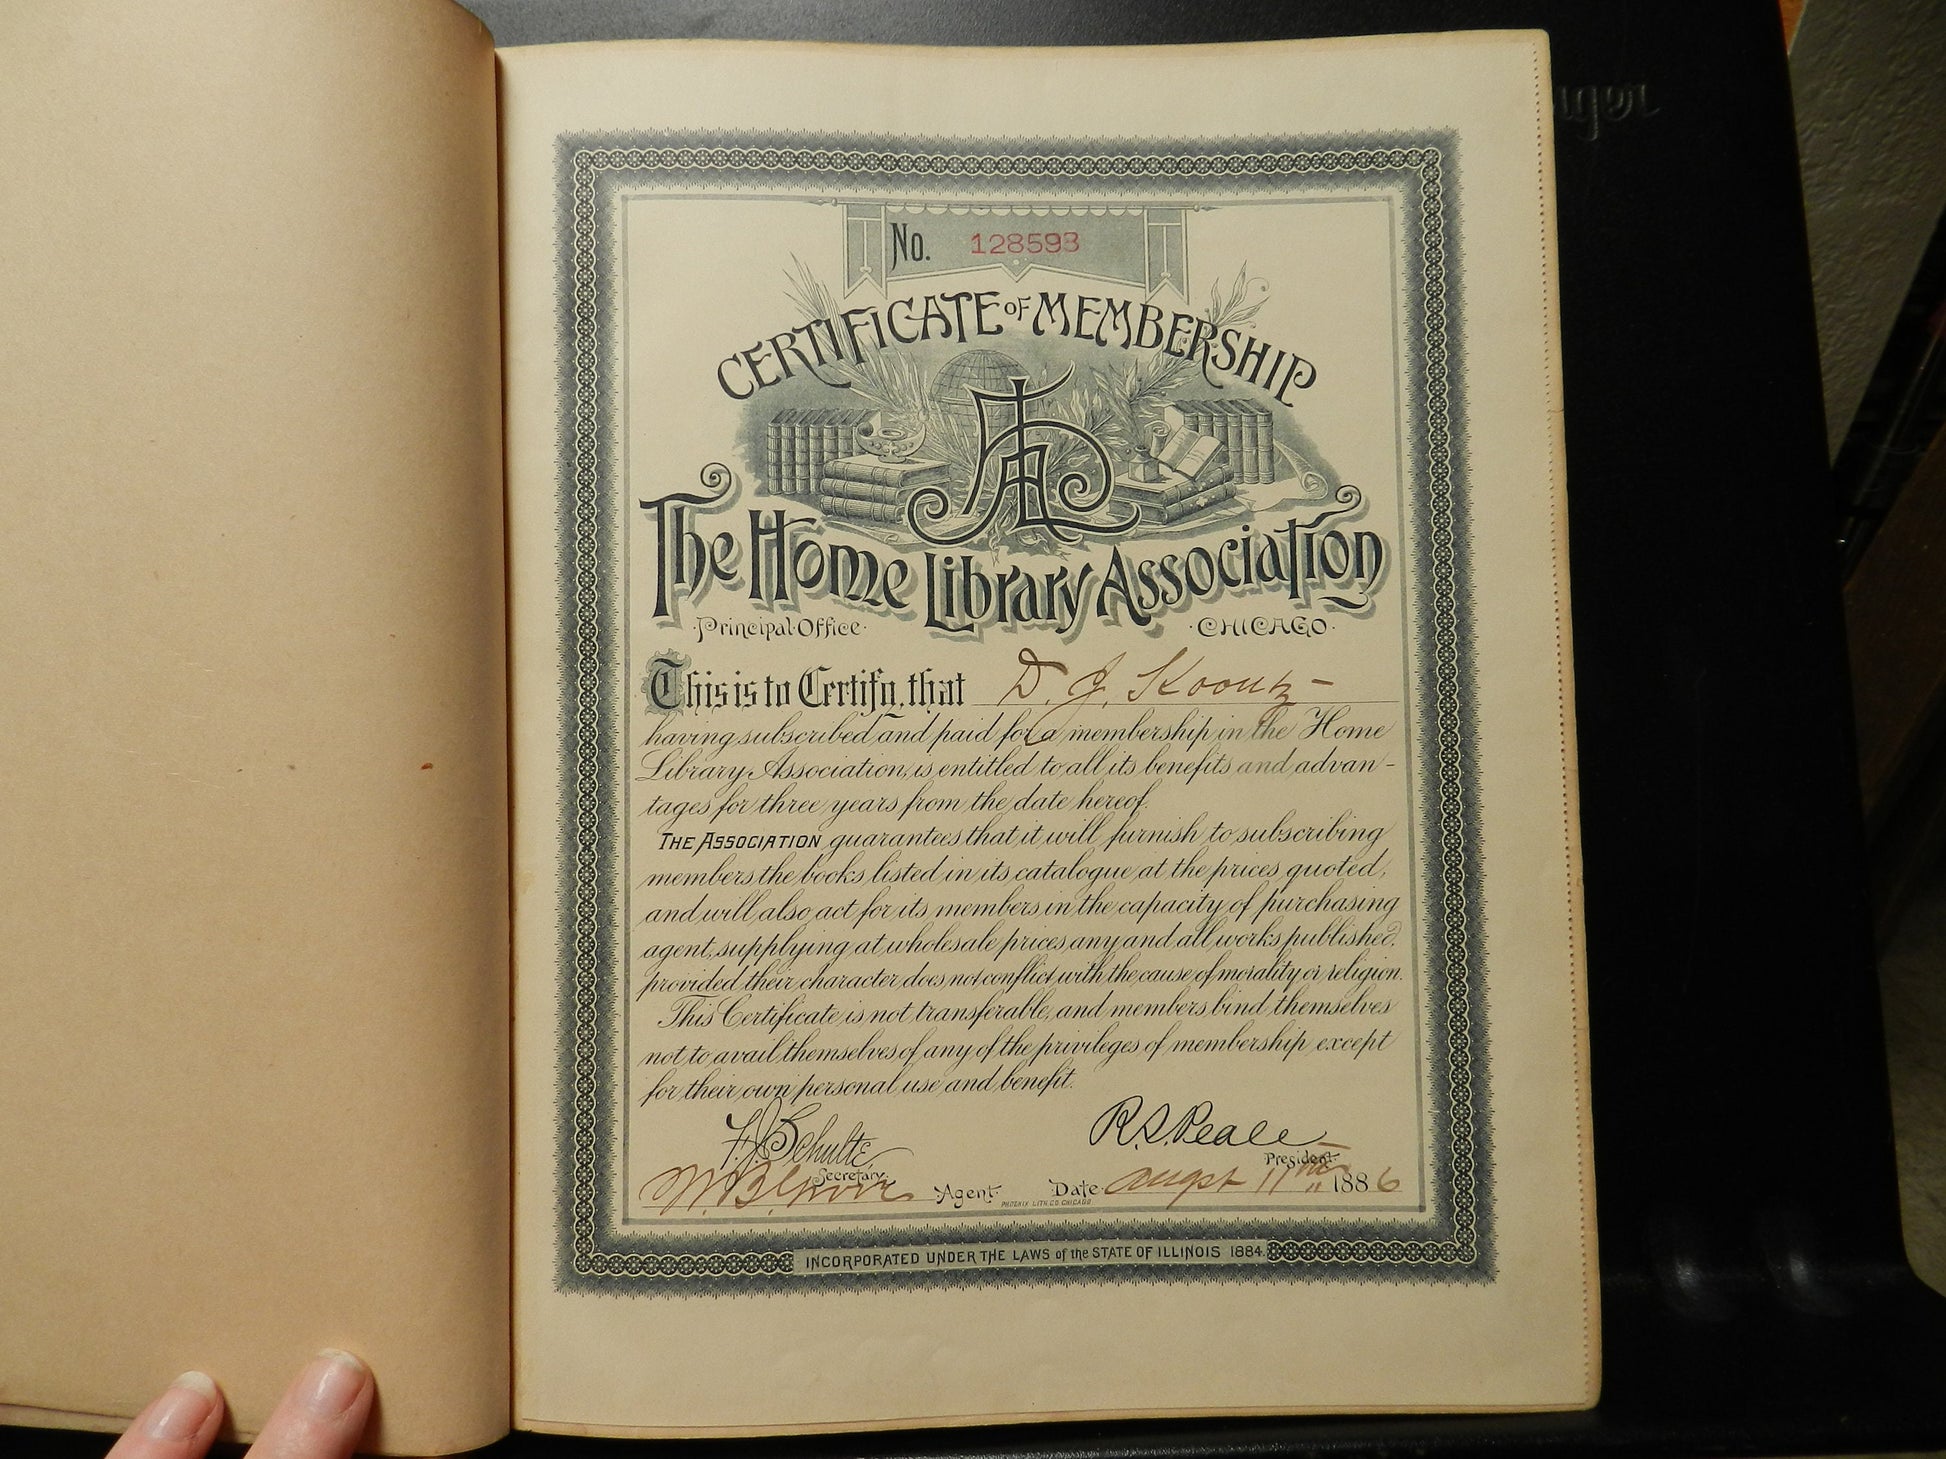 No. 128593
CERTIFICATE OF MEMBERSHIP
The Home Library Association
Principal Office
CHICAGO
This is to Certify, that D. J. Koontz
having subscribed and paid for a membership in the Home
Library Association, is entitled to all its benefits and advan-
tages for three years from the date hereof.
THE ASSOCIATION guarantees that it will furnish to subscribing
members the books listed in its catalogue at the prices quoted,
and will also act for its members in the capacity of purchasing
agent, supplying at wholesale prices any and all works published,
provided their character does not conflict with the cause of morality or religion.
This Certificate is not transferable, and members bind themselves
not to avail themselves of any of the privileges of membership except
for their own personal use and benefit.
F. J. Schulte
Secretary.
R. S. Peale
President.
Agent. Date August 17th 1886
PHOENIX LITH. CO. CHICAGO
INCORPORATED UNDER THE LAWS of the STATE OF ILLINOIS 1884.